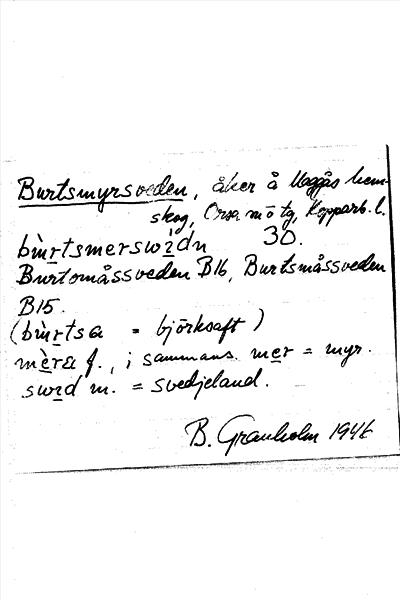 Burtsmyrsveden, åker å Maggås hem-
skog, Orsa mötg, Kopparb. l.
bùrtsmerswìdn 30.
Burtomåssveden B16, Burtsmåssveden
B15.
(bùrtsa = björksaft)
mèra f., i sammans. mer = myr.
swid m. = svedjeland.
B. Granholm 1946